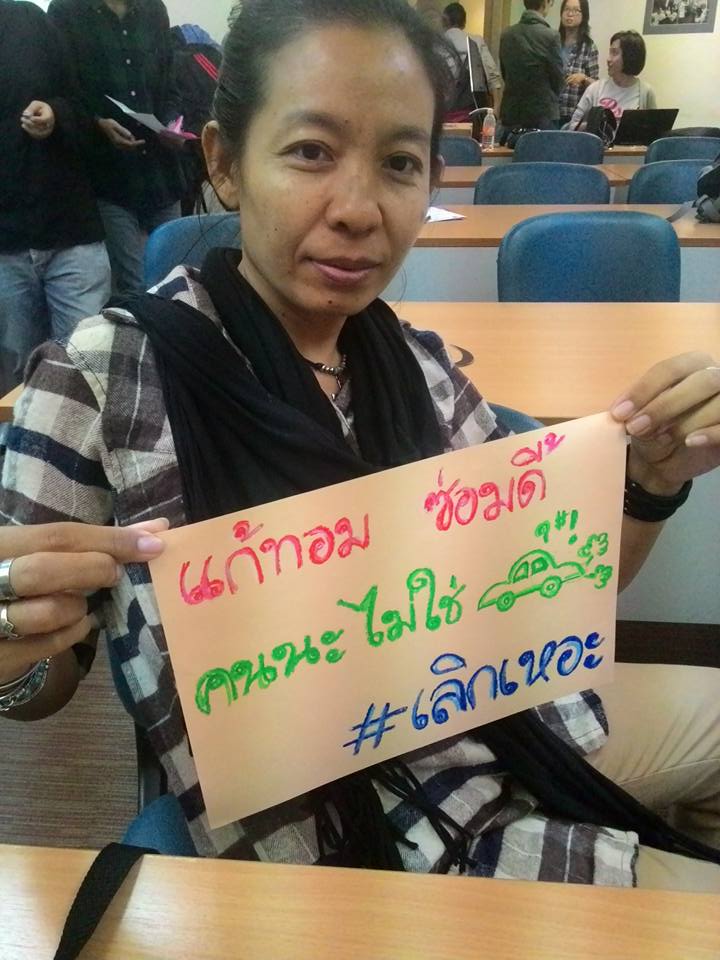 แก้ทอม ซ่อมดี้
คนนะไม่ใช่ ?#!
#เลิกเหอะ